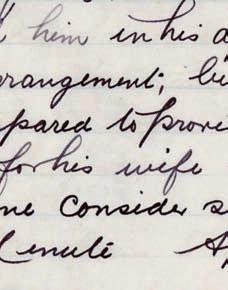 him in his
rrangement; bu
pared to prove
for his wife
ne consider s
enute